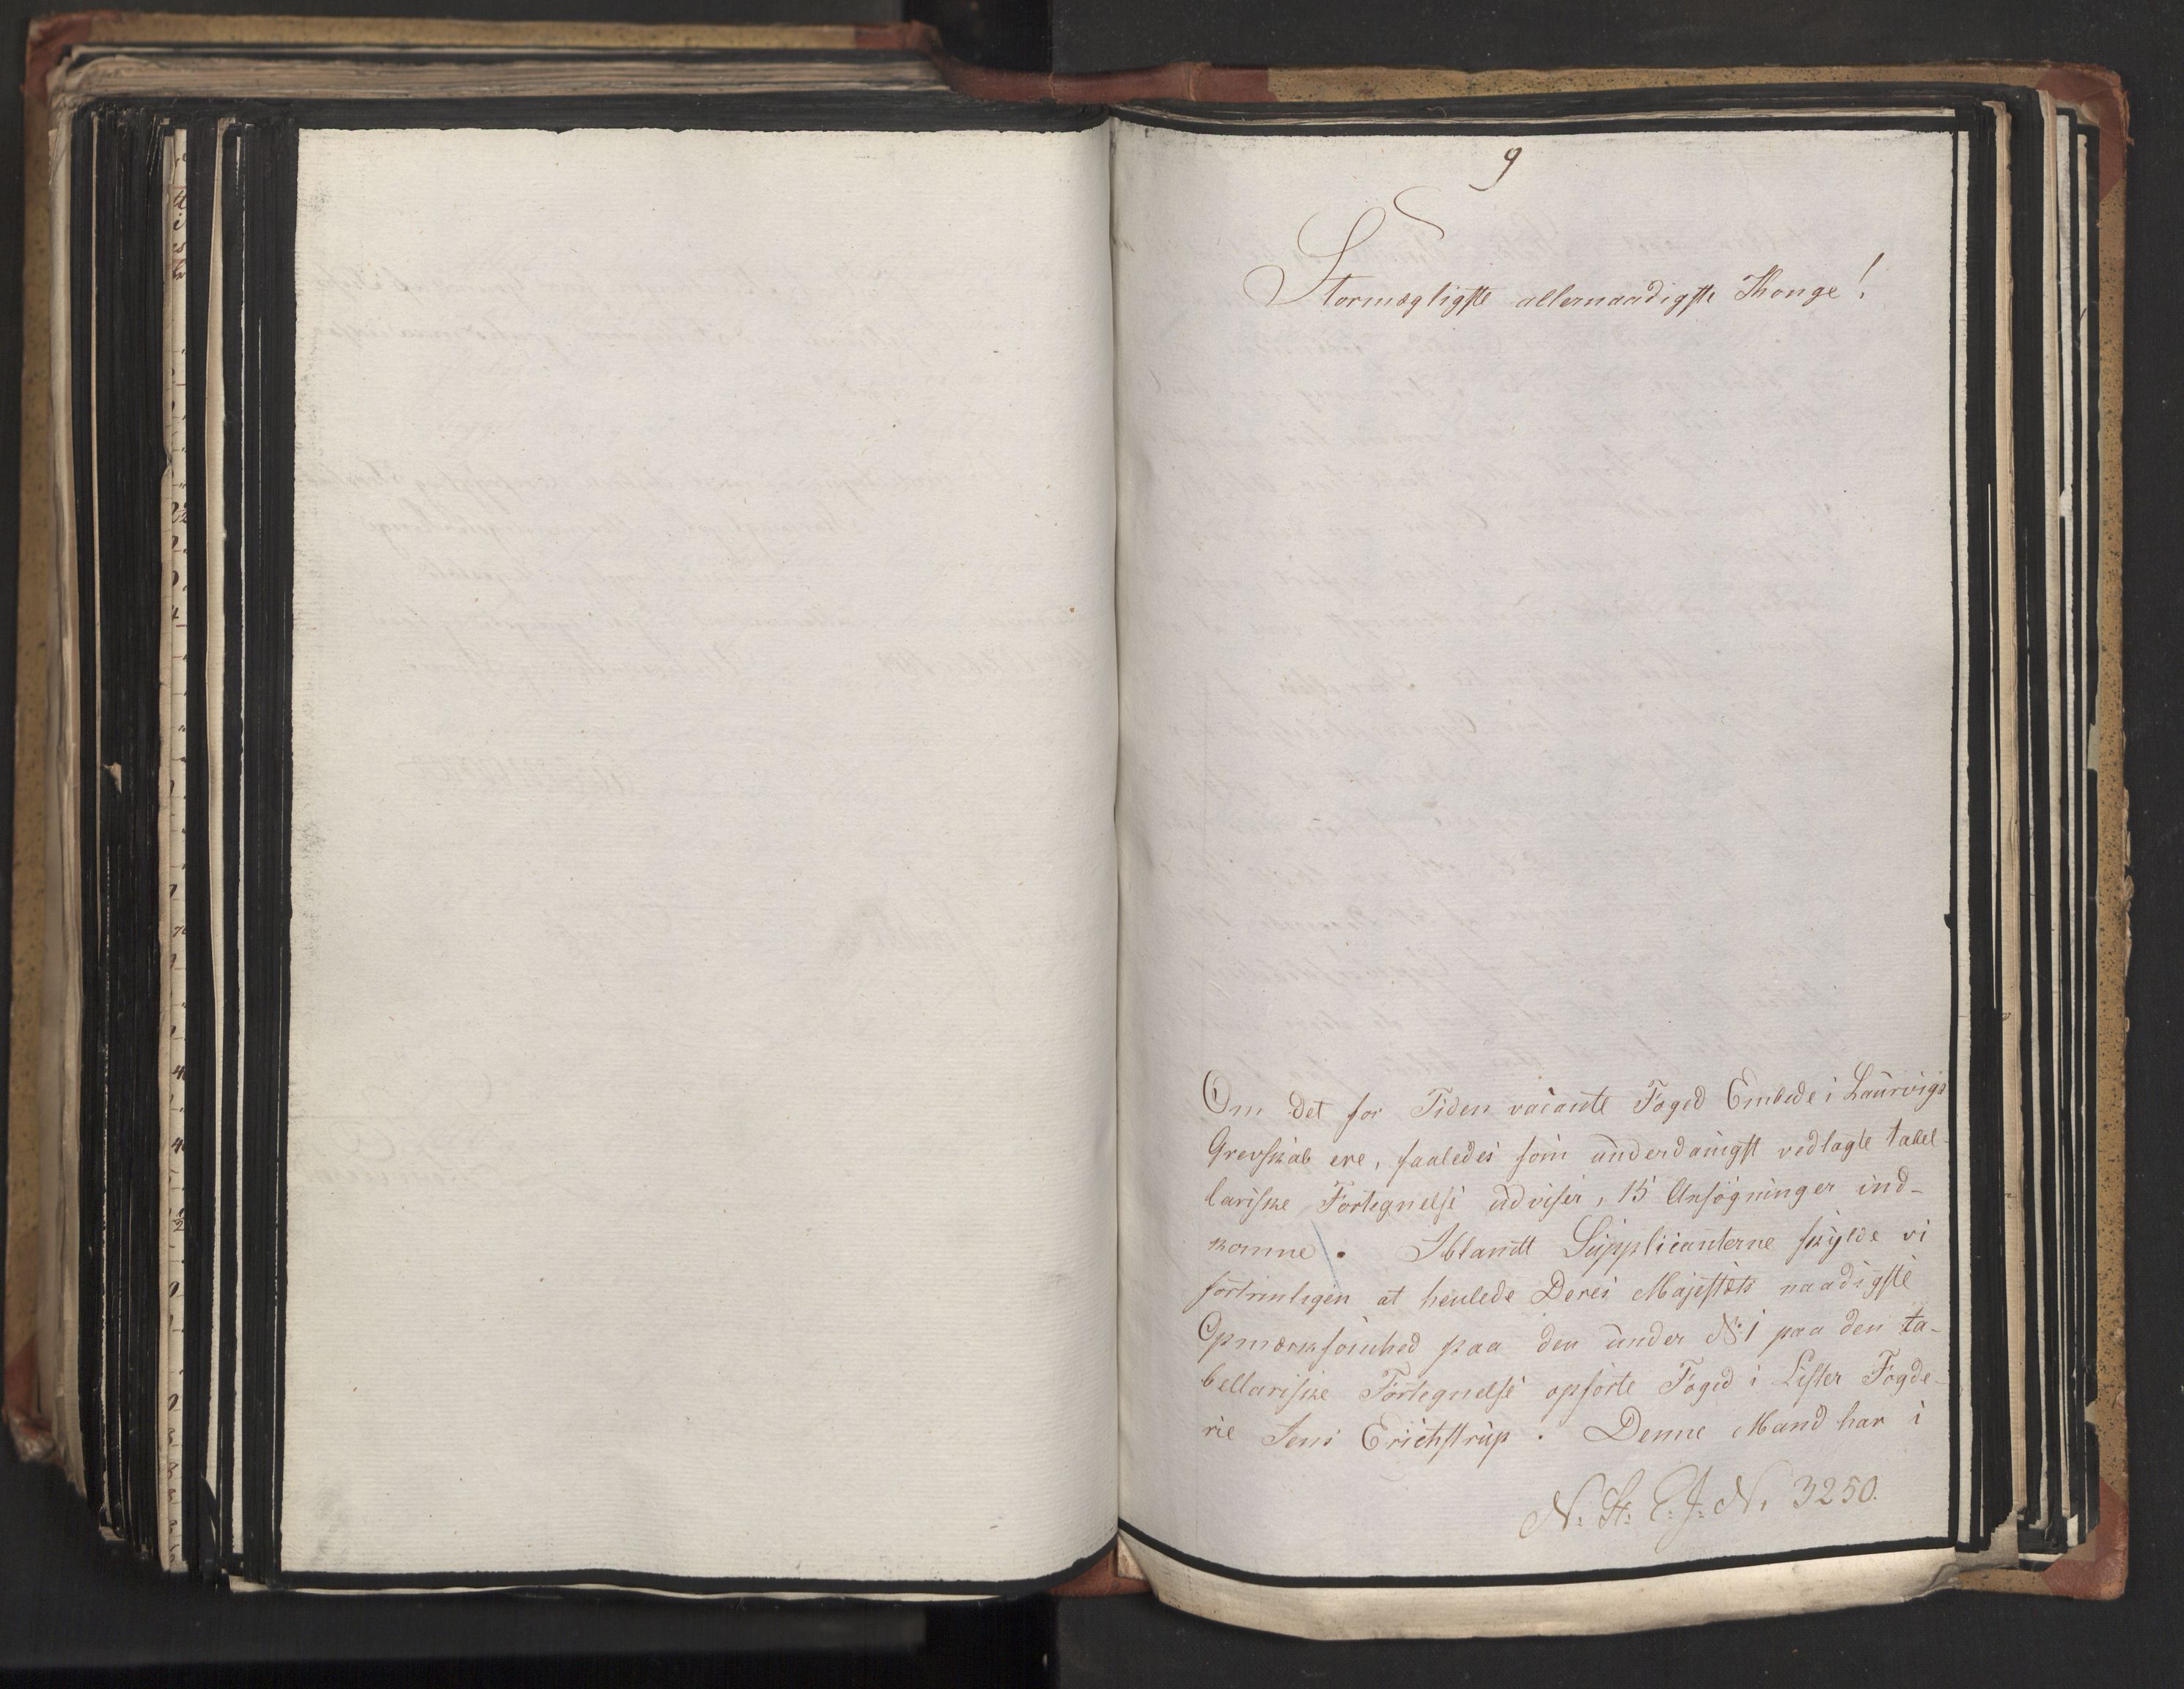 9
Stormægtigste allernaadigste Konge!
Om det for Tiden vacante Foged Embede i Laurvigs
Grevskab ere, saaledes som underdanigst vedlagte tabel-
lariske Fortegnelse udviser, 15 Ansøgninger ind-
komne. Iblandt Supplicanterne skylde vi
fortrinligen at henlede Deres Majestæts naadigste
Opmærksomhed paa den under N: 1 paa den ta-
bellariske Fortegnelse opførte Foged i Lister Fogde-
rie Jens Erichstrup. Denne Mand har i
N: St: C: J: N. 3250.